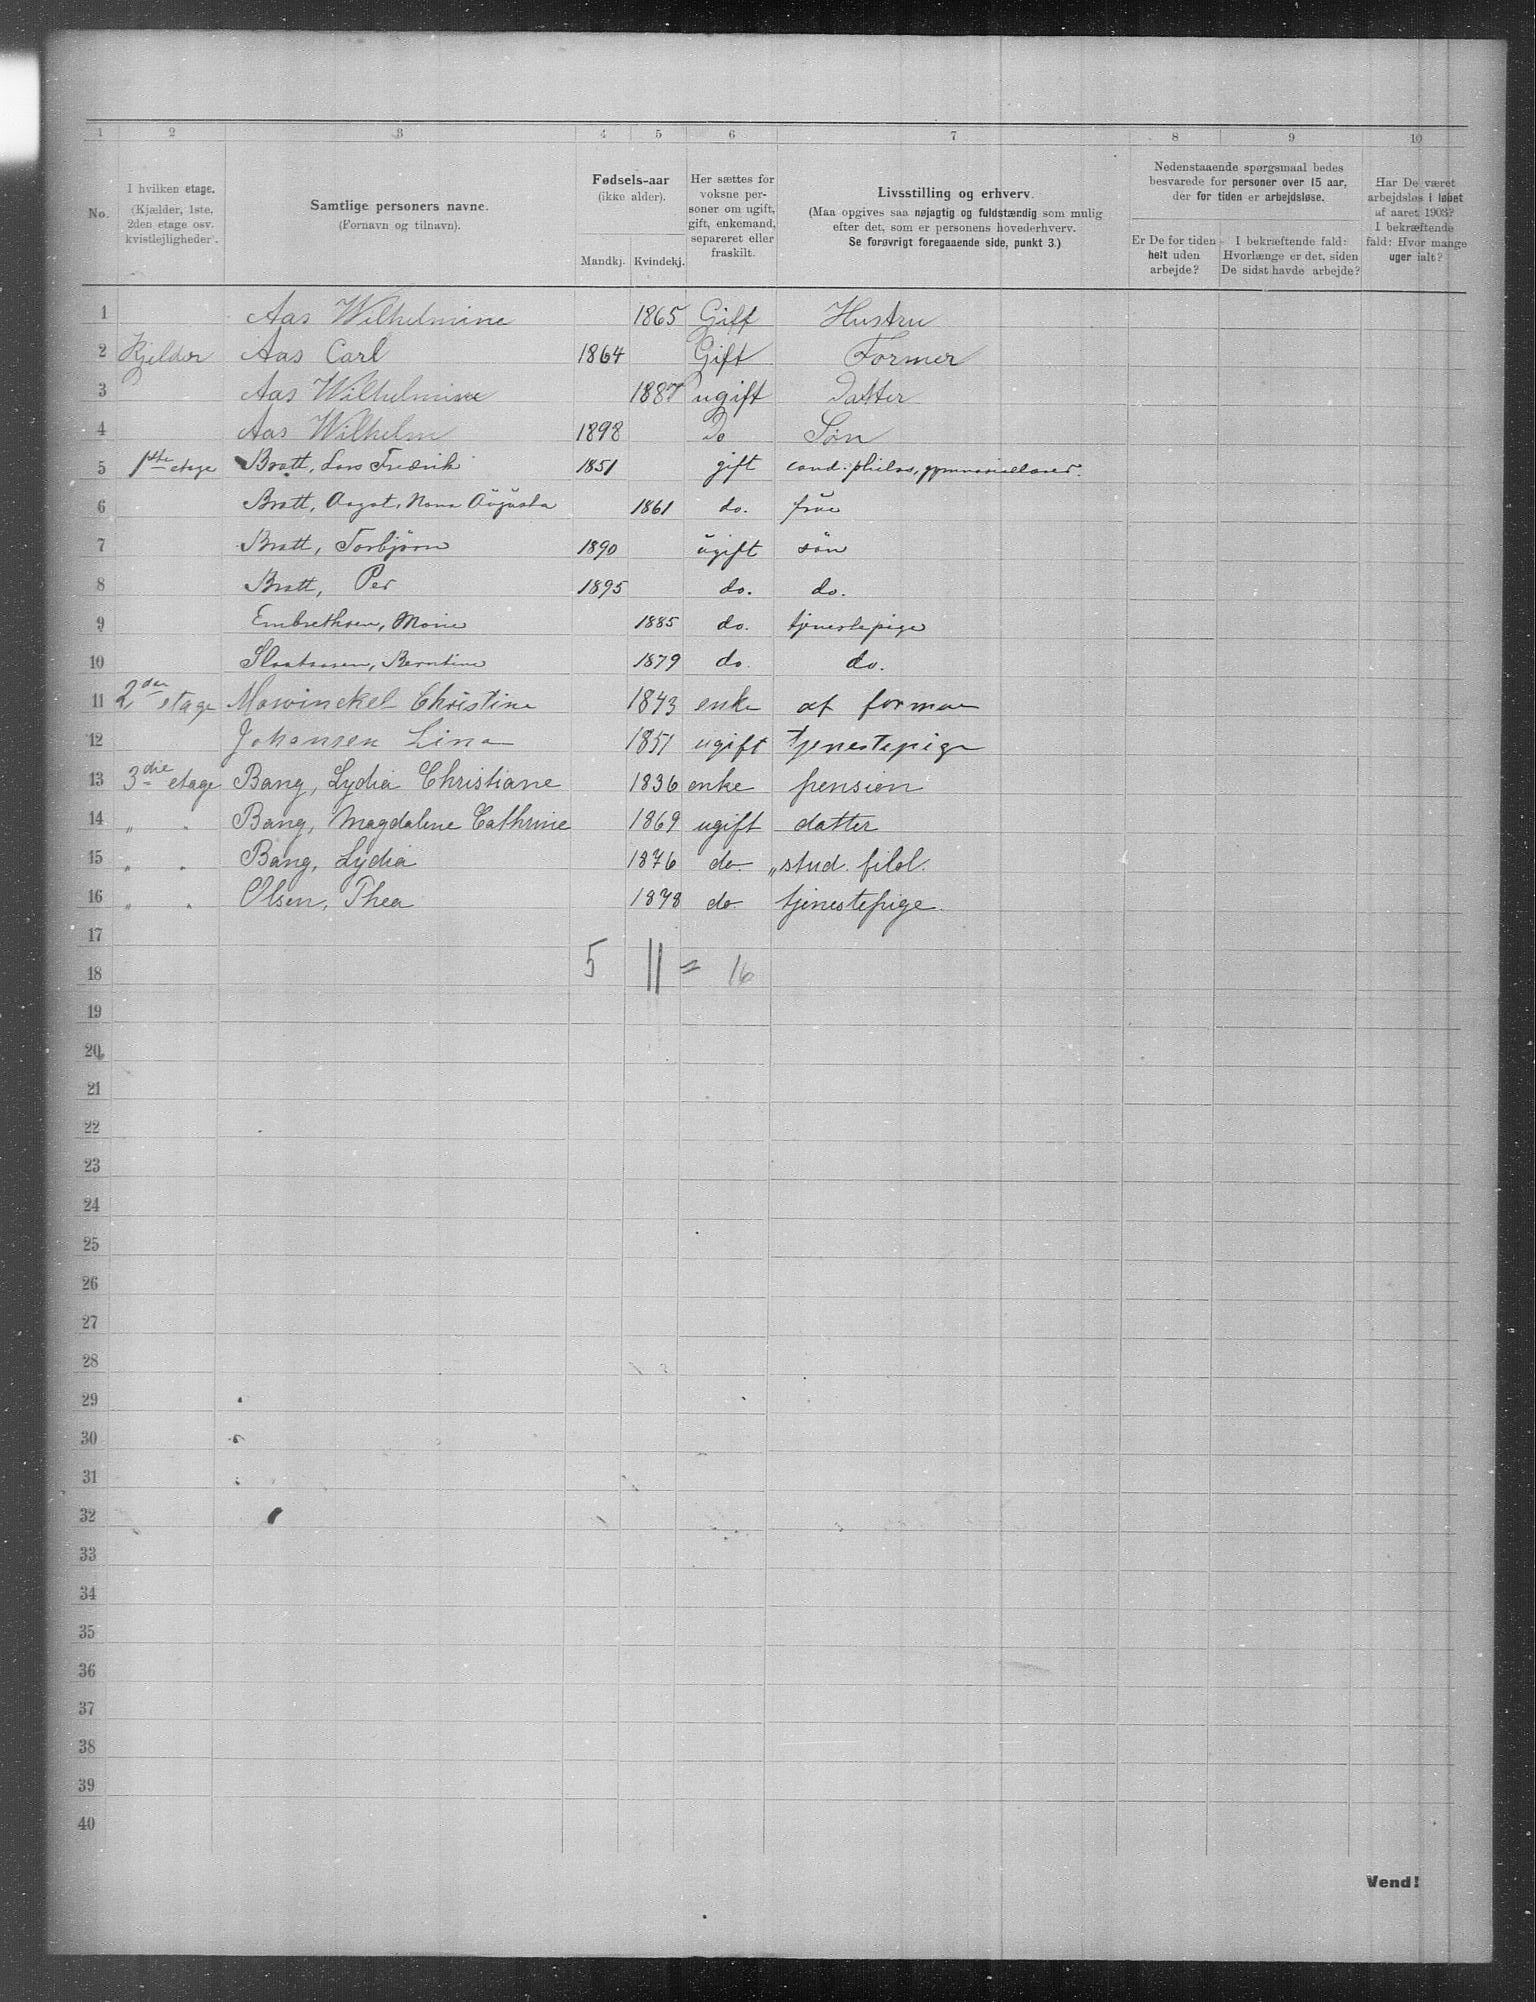 1 2 3 4 5 6 7 8 9 10
No.
I hvilken etage.
(Kjælder, 1ste,
2den etage osv.
kvistlejligheder).
Samtlige personers navne.
(Fornavn og tilnavn).
Fødsels-aar
(ikke alder).
Mandkj. Kvindekj.
Her sættes for
voksne per-
soner om ugift,
gift, enkemand,
separeret eller
fraskilt.
Livsstilling og erhverv.
(Maa opgives saa nøjagtig og fuldstændig som mulig
efter det, som er personens hovederhverv.
Se forøvrigt foregaaende side, punkt 3.)
Nedenstaaende spørgsmaal bedes
besvarede for personer over 15 aar,
der for tiden er arbejdsløse.
Er De for tiden
helt uden
arbejde?
I bekræftende fald:
Hvorlænge er det, siden
De sidst havde arbejde?
Har De været
arbejdsløs i løbet
af aaret 1903?
I bekræftende
fald: Hvor mange
uger ialt?
1 Aas Wilhelmine 1865 Gift Hustru
2 Kjelder Aas Carl 1864 Gift Former
3 Aas Wilhelmine 1887 ugift Datter
4 Aas Wilhelm 1898 Do Søn
5 1ste etage Bratt, Lars Fredrik 1851 gift cand: philos, gymnasielærer.
6 Bratt, Aagot, Nana Augusta 1861 do. frue
7 Bratt, Torbjørn 1890 ugift søn
8 Bratt, Per 1895 do. do.
9 Embrethsen, Marie 1885 do. tjenestepige
10 Slaatssen, Berntine 1879 do. do.
11 2den etage Mowinckel Christine 1843 enke af formue
12 Johansen Lina 1851 ugift tjenestepige
13 3die etage Bang, Lydia Christiane 1836 enke pension
14 " " Bang, Magdalene Cathrine 1869 ugift datter
15 " " Bang, Lydia 1876 do. " stud. filol.
16 " " Olsen, Thea 1878 do. tjenestepige.
17
18 5 11 = 16
19
20
21
22
23
24
25
26
27
28
29
30
31
32
33
34
35
36
37
38
39
40
Vend!